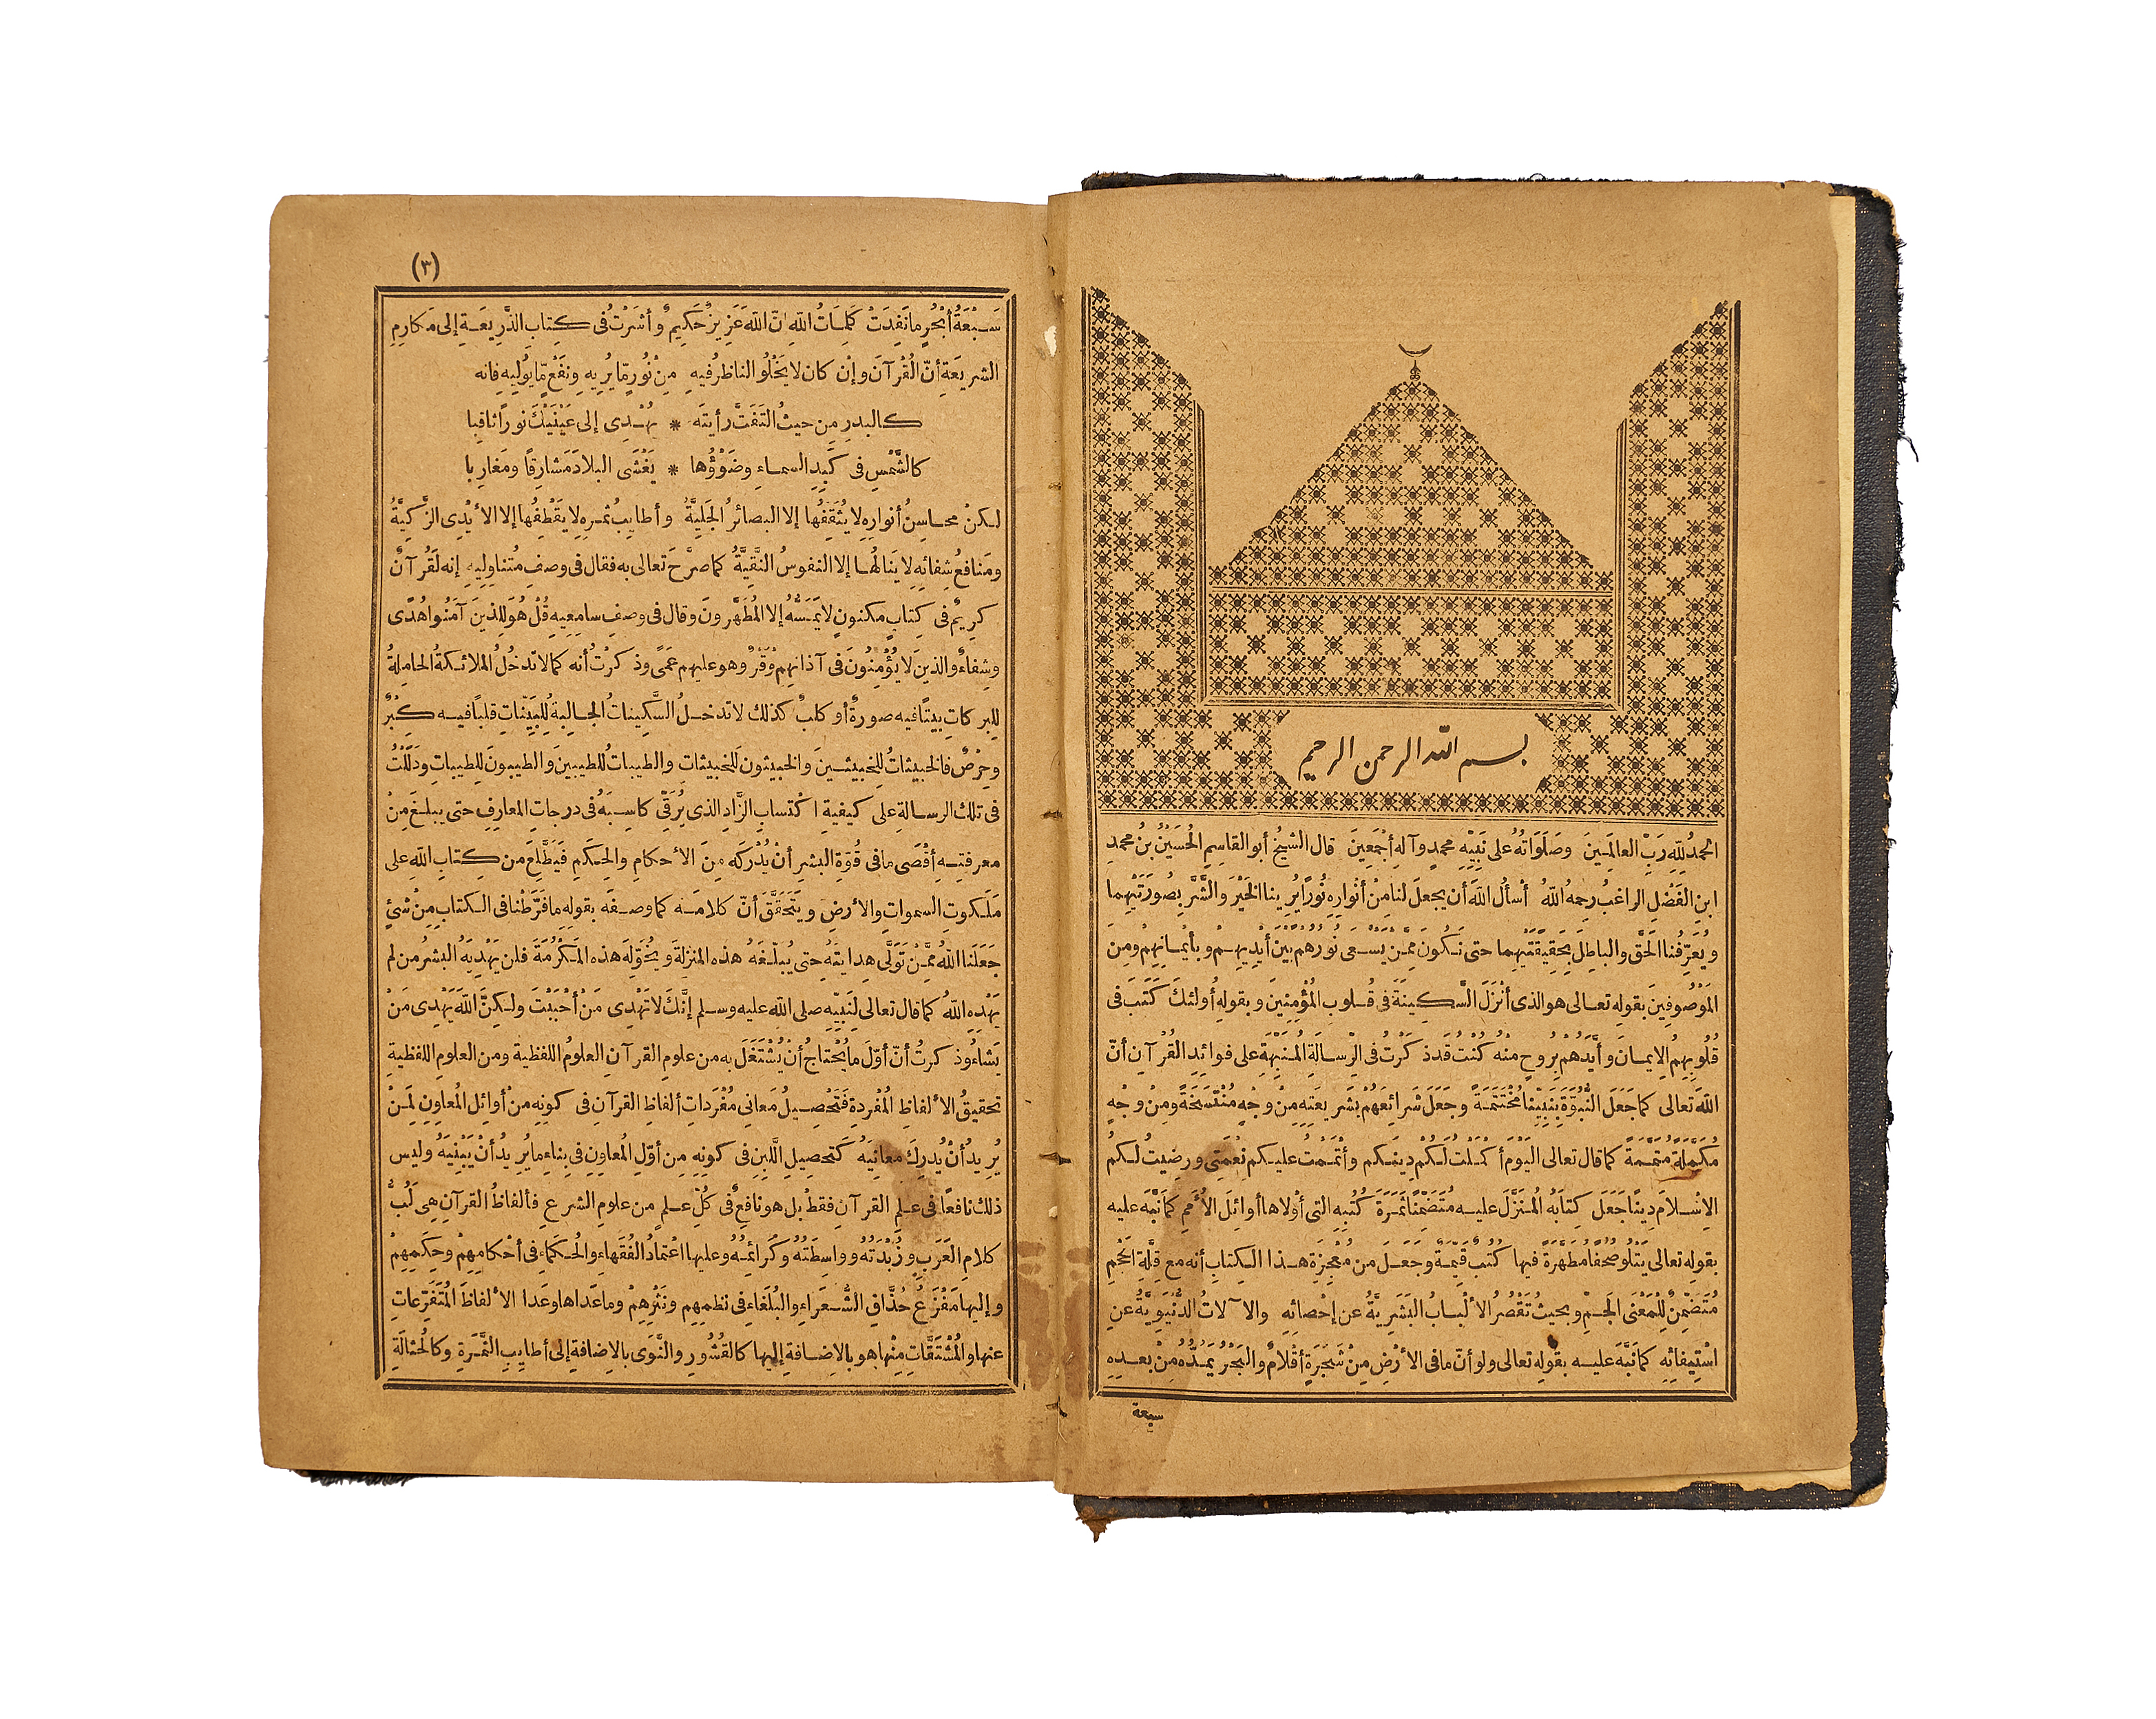 بسم الله الرحمن الرحيم
الحمدُ للهِ رَبِّ العالَمِينَ وصَلَوَاتُهُ على نَبِيِّهِ محمدٍ وآلهِ أجْمَعِينَ قال الشيخُ أبو القاسِمِ الحُسَيْنُ بنُ محمدِ
ابنِ الفَضْلِ الراغبُ رحِمهُ اللهُ أسْألُ اللهَ أن يجعلَ لنا مِنْ أنْوارِهِ نُورًا يُرِينا الخَيْرَ والشَّرَّ بِصُورَتَيْهِما
ويُعَرِّفُنا الحَقَّ والباطِلَ بِحَقِيقَتَيْهِما حتى نَكُونَ مِمَّنْ يَسْعَى نُورُهُمْ بَيْنَ أيْدِيهِمْ وبأيْمَانِهِمْ ومِنَ
المَوْصُوفِينَ بقولِهِ تعالى هو الذى أنْزَلَ السَّكِينَةَ فى قُلوبِ المُؤْمِنِينَ وبقولِهِ أُولئكَ كَتَبَ فى
قُلُوبِهِمُ الإيمانَ وأيَّدَهُمْ بِرُوحٍ منْهُ كُنْتُ قَدْ ذَكَرْتُ فى الرِّسالَةِ المُنَبِّهَةِ على فوائِدِ القُرْآنِ أنَّ
اللهَ تعالى كما جَعَلَ النُّبُوَّةَ بِنَبِيِّنا مُخْتَتَمَةً وجَعَلَ شَرائِعَهُمْ بشَرِيعَتِهِ مِنْ وجْهٍ مُنْتَسَخَةً ومِنْ وجْهٍ
مُكَمَّلَةً مُتَمَّمَةً كما قال تعالى اليَوْمَ أكْمَلْتُ لَكُمْ دِينَكم وأتْمَمْتُ عليكم نِعْمَتِى ورضِيتُ لَكُمُ
الإسْلامَ دِينًا جَعَلَ كِتابَهُ المُنَزَّلَ عليه مُتَضَمِّنًا ثَمَرَةَ كُتُبِهِ التى أوْلاها أوائِلَ الأُمَمِ كما نَبَّهَ عليه
بقولِهِ تعالى يَتْلُو صُحُفًا مُطَهَّرَةً فيها كُتُبٌ قَيِّمَةٌ وجَعَلَ من مُعْجِزَةِ هذا الكِتابِ أنه مع قِلَّةِ الحَجْمِ
مُتَضَمِّنٌ لِلْمَعْنَى الجَمِّ وبحيثُ تَقْصُرُ الألْبابُ البَشَرِيَّةُ عن إحْصائِهِ والآلاتُ الدُّنْيَوِيَّةُ عنِ
اسْتِيفائِهِ كما نَبَّهَ عليه بقولِهِ تعالى ولو أنّ ما فى الأرْضِ مِنْ شَجَرَةٍ أقْلامٌ والبَحْرُ يَمُدُّهُ مِنْ بعدِهِ
سبعة
(٣)
سَبْعَةُ أبْحُرٍ ما نَفِدَتْ كَلِمَاتُ اللهِ إنّ اللهَ عَزِيزٌ حَكِيمٌ وأشَرْتُ فى كِتابِ الذَّرِيعَةِ إلى مَكارِمِ
الشرِيعَةِ أنّ القُرْآنَ وإنْ كان لا يَخْلُو الناظرُ فيهِ مِنْ نُورٍ مّا يُرِيهِ ونَفْعٍ مّا يُولِيهِ فإنه
كالبدرِ مِن حيثُ التَفَتَّ رأيتَه * يُهْدِى إلى عَيْنَيْكَ نورًا ثاقِبا
كالشَّمْسِ فى كَبِدِ السماءِ وضَوْؤُها * يَغْشَى البلادَ مَشارِقًا ومَغارِبا
لكنْ محاسِنُ أنوارِهِ لا يُثَقِّفُها إلا البصائرُ الجَلِيَّةُ وأطايِبُ ثمرِهِ لا يقْطِفُها إلا الأيْدِى الزَّكِيَّةُ
ومَنافعُ شِفائِهِ لا يَنالُها إلا النفوسُ النَّقِيَّةُ كما صرَّحَ تعالى به فقال فى وصفِ مُتناوِلِيهِ إنه لَقُرْآنٌ
كرِيمٌ فى كِتابٍ مكنونٍ لا يَمَسُّهُ إلا المُطَهَّرونَ وقال فى وصفِ سامِعِيهِ قُلْ هُوَ للذينَ آمَنُوا هُدًى
وشِفاءٌ والذينَ لا يُؤْمِنُونَ فى آذانِهِمْ وَقْرٌ وهو عليهم عَمًى وذَكرْتُ أنه كما لا تدخُلُ الملائكةُ الحامِلةُ
للبركاتِ بيتًا فيه صورةٌ أو كلبٌ كذلك لا تدخلُ السَّكِيناتُ الجالِبةُ لِلبَيِّناتِ قلبًا فيه كِبْرٌ
وحِرْصٌ فالخبيثاتُ لِلخبيثينَ والخبيثون لِلخبيثات والطيباتُ للطيبينَ والطيبونَ لِلطيباتِ ودَلَّلْتُ
فى تلك الرسالةِ على كيفيةِ اكْتسابِ الزَّادِ الذى يُرَقِّى كاسِبَهُ فى درجاتِ المعارِفِ حتى يبلغَ مِنْ
معرفتِهِ أقْصَى ما فى قُوّةِ البشرِ أنْ يُدْرِكَه مِنَ الأحكامِ والحِكَمِ فَيَطَّلِعَ من كِتابِ اللهِ على
مَلَكوتِ السمواتِ والأرضِ ويَتَحَقَّقَ أنّ كلامَه كما وصفَه بقولِهِ ما فرَّطْنا فى الكتابِ مِنْ شَىْءٍ
جَعَلَنا اللهُ مِمَّنْ تَوَلَّى هِدايَتَهُ حتى يُبَلِّغَهُ هذه المنزلةَ ويُخَوِّلَه هذه المَكْرُمَةَ فلن يَهْدِيَهُ البشرُ من لم
يَهْدِهِ اللهُ كما قال تعالى لِنَبِيِّهِ صلى الله عليه وسلم إنَّكَ لا تَهْدِى مَنْ أحْبَبْتَ ولكِنَّ اللهَ يَهْدِى مَنْ
يَشاءُ وذكرتُ أنّ أوّلَ ما يُحْتاجُ أنْ يُشْتَغَلَ به من علومِ القرآنِ العلومُ اللفظية ومن العلومِ اللفظيةِ
تحقيقُ الألفاظِ المُفْردةِ فَتَحْصِيلُ مَعانِى مُفْرَداتِ ألفاظِ القرآنِ فى كونِهِ منْ أوائِلِ المُعاوِنِ لِمَنْ
يُرِيدُ أنْ يُدرِكَ معانِيَهُ كَتحصِيلِ اللَّبِنِ فى كونِهِ مِن أوّلِ المُعاوِنِ فى بِناءِ ما يُرِيدُ أنْ يَبْنِيَهُ وليس
ذلك نافعًا فى عِلمِ القرآنِ فقطْ بل هو نافعٌ فى كُلِّ عِلمٍ من علومِ الشرعِ فألفاظُ القرآنِ هِى لُبُّ
كلامِ العَرَبِ وزُبْدَتُهُ وواسِطَتُهُ وكَرائمُهُ وعليها اعْتمادُ الفُقَهاءِ والحُكَماءِ فى أحْكامِهِمْ وحِكَمِهِمْ
وإليها مَفْزَعُ حُذَّاقِ الشُّعَراءِ والبُلَغاءِ فى نظمِهِم ونَثْرِهِمْ وما عَداها وعَدا الألفاظَ المُتَفَرِّعاتِ
عنها والمُشْتَقَّاتِ مِنْها هو بالإضافةِ إليها كالقُشُورِ والنَّوَى بالإضافةِ إلى أطايِبِ الثَّمَرَةِ وكالحُثالَةِ